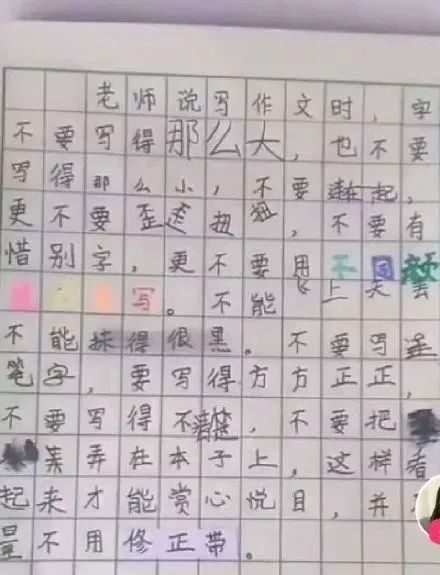 老师说写作文时，字
不要写得那么大，也不要
写得那么小，不要连在起，
更不要歪歪扭扭，不要有
惜别字，更不要用不同颜
写。不能飞上天
不能抹得很黑。不要写连
笔字，要写得方方正正，
不要写得不清楚，不要把
弄在本子上，这样看
起来才能赏心悦目，并
量不用修正带。